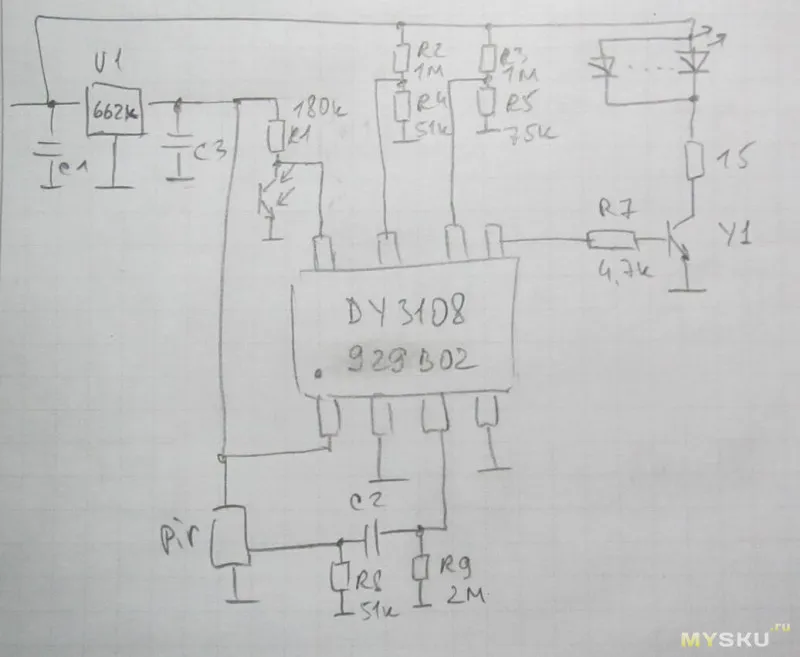 U1
662k
C1
C3
180k
R1
R2
1M
R4
51k
R3
1M
R5
75k
15
R7
4,7k
Y1
DY3108
929B02
C2
pir
R8
51k
R9
2M
MYSKU.ru